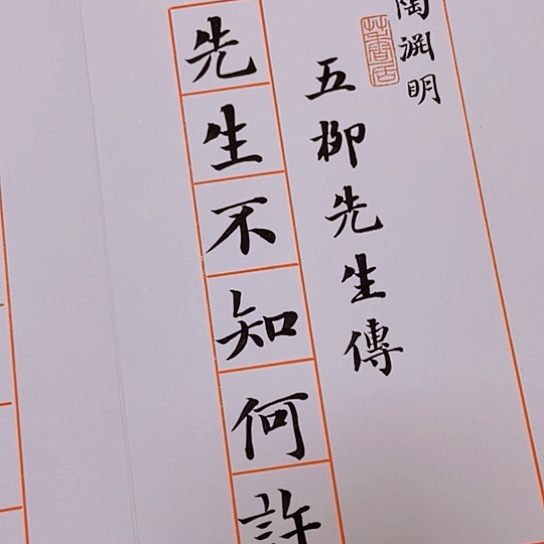 陶淵明
五柳先生傳
先生不知何許